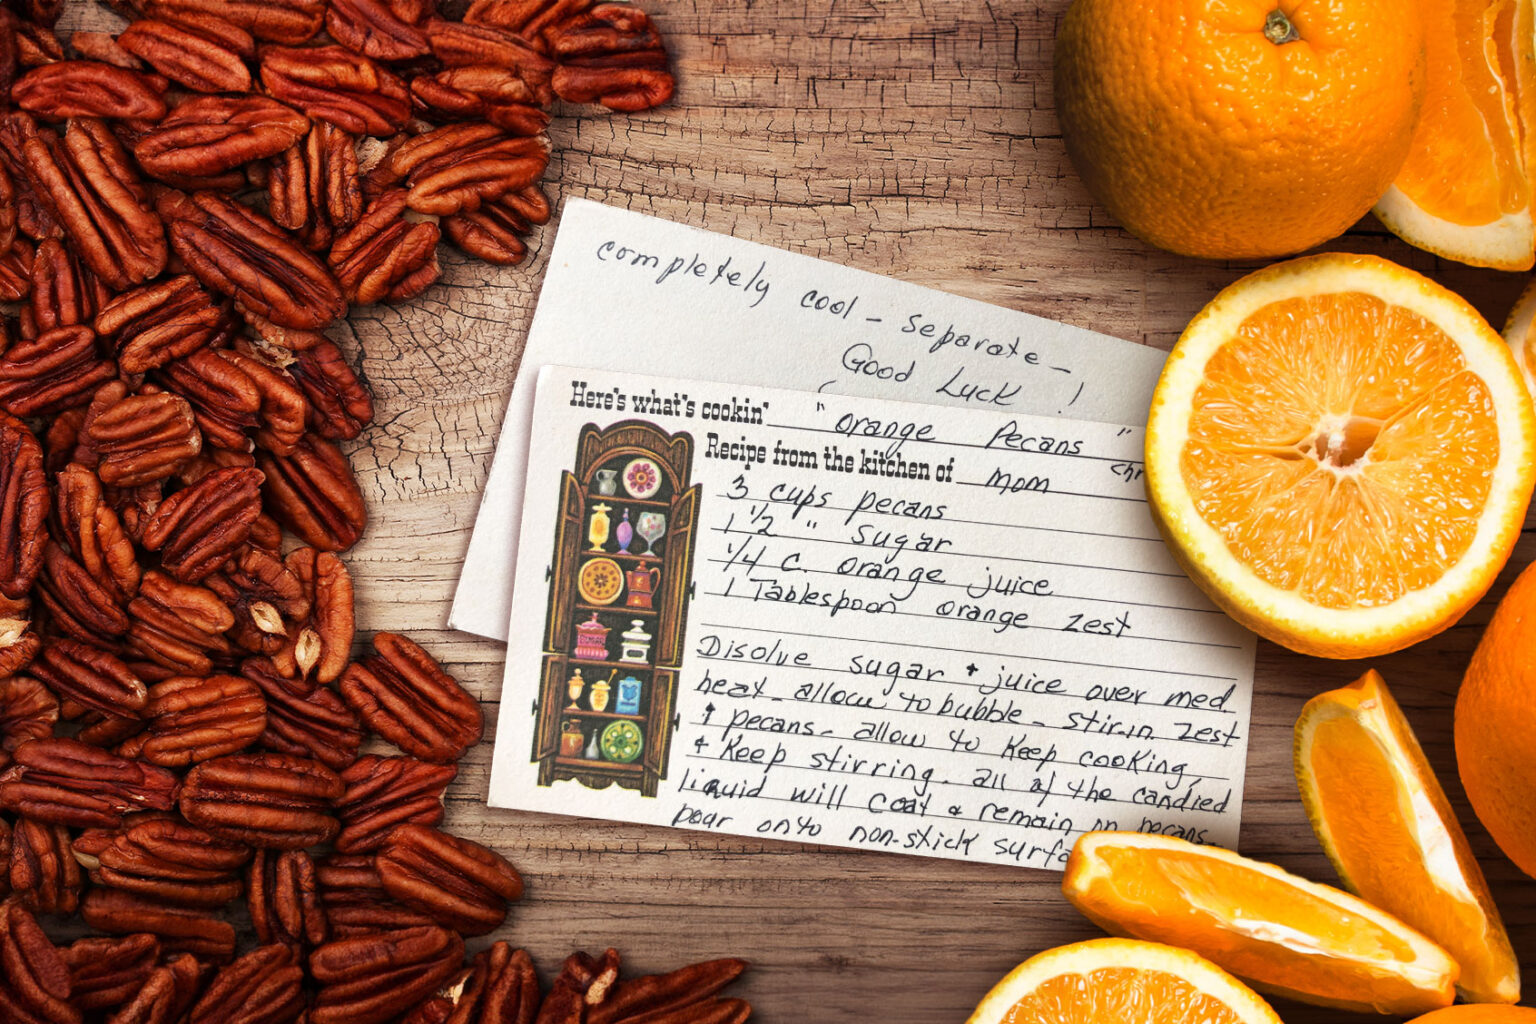 completely cool - separate -
Good Luck !
Here's what's cookin' "Orange Pecans"
Recipe from the kitchen of Mom
3 cups pecans
1 1/2 " Sugar
1/4 c. orange juice
1 Tablespoon orange zest
Disolve sugar + juice over med
heat - allow to bubble - stir in zest
+ pecans - allow to keep cooking,
+ Keep stirring. all of the candied
liquid will coat & remain on pecans.
pour onto non-stick